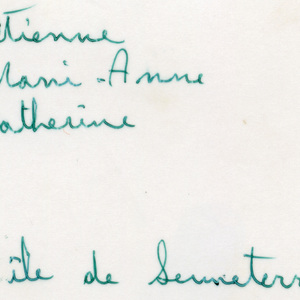 Etienne
Marie-Anne
Catherine
île de Sumaterr